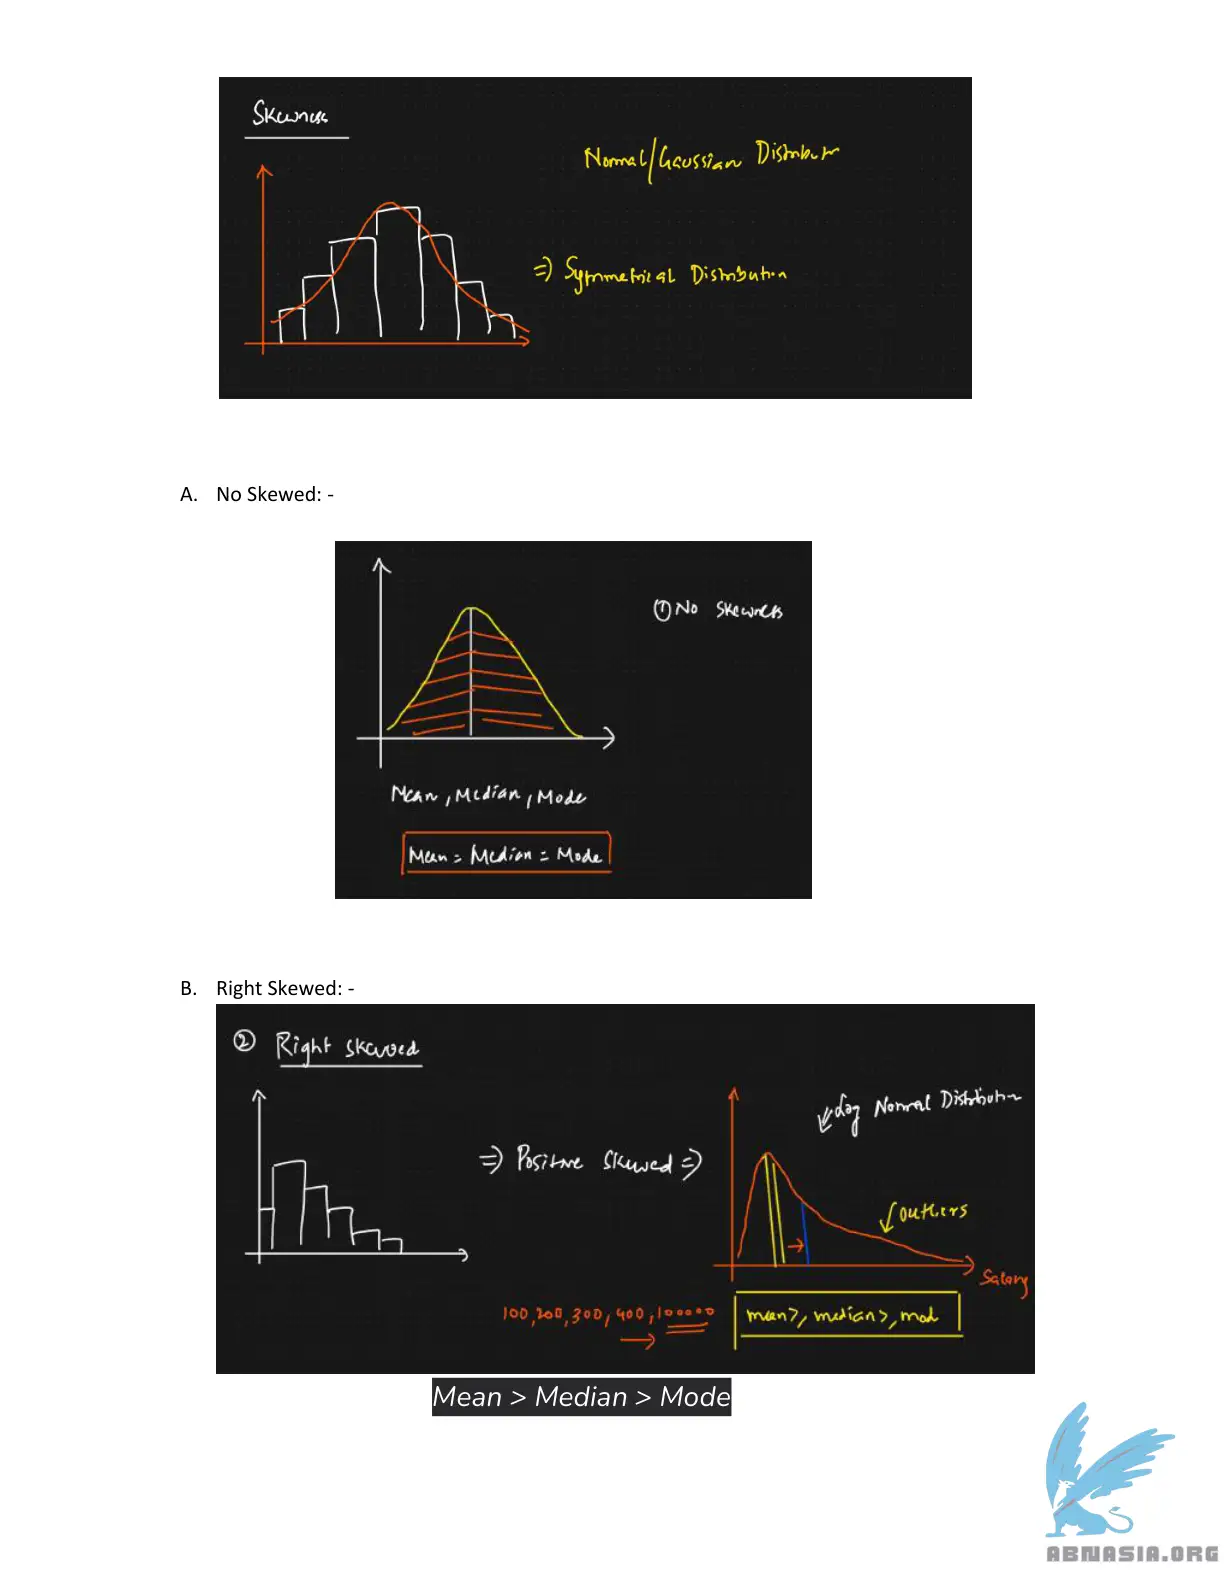 Skewness
Normal/Gaussian Distributn
=) Symmetrical Distribution
A. No Skewed: -
① No skewness
Mean, Median, Mode
Mean = Median = Mode
B. Right Skewed: -
② Right skewed
Log Normal Distribution
=) Positive Skewed =)
outliers
Salary
100,200,300,400,100000
mean>, median>, mod
Mean > Median > Mode
ABNASIA.ORG